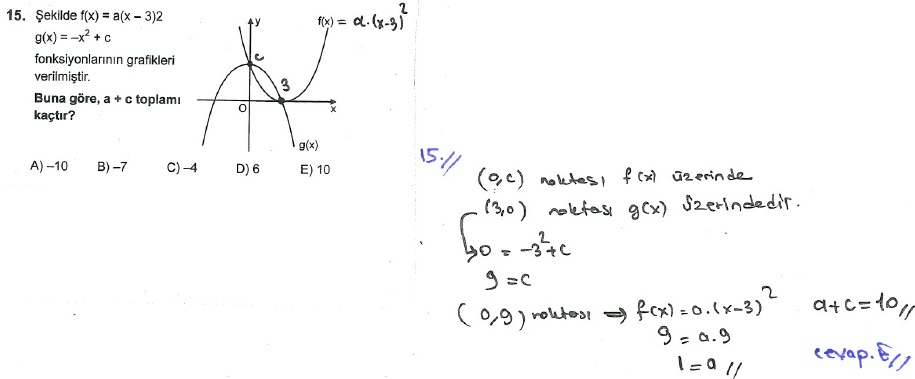 15. Şekilde f(x) = a(x – 3)2
g(x) = –x² + c
fonksiyonlarının grafikleri
verilmiştir.
Buna göre, a + c toplamı
kaçtır?
y
f(x) = a.(x-3)²
c
3
O
x
g(x)
A) –10 B) –7 C) –4 D) 6 E) 10
15.//
(0,c) noktası f(x) üzerinde
(3,0) noktası g(x) üzerindedir.
0 = -3²+c
9 = c
(0,9) noktası ⇒ f(x) = a.(x-3)²
9 = a.9
1 = a //
a+c=10//
cevap.E//